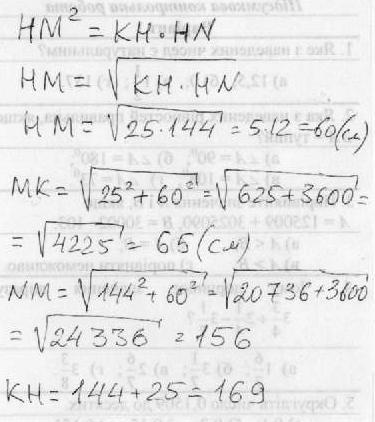 HM² = KH·HN
HM = √KH·HN
HM = √25·144 = 5·12 = 60(см)
MK = √25² + 60² = √625 + 3600 =
= √4225 = 65 (см)
NM = √144² + 60² = √20736 + 3600
= √24336 = 156
KH = 144 + 25 = 169